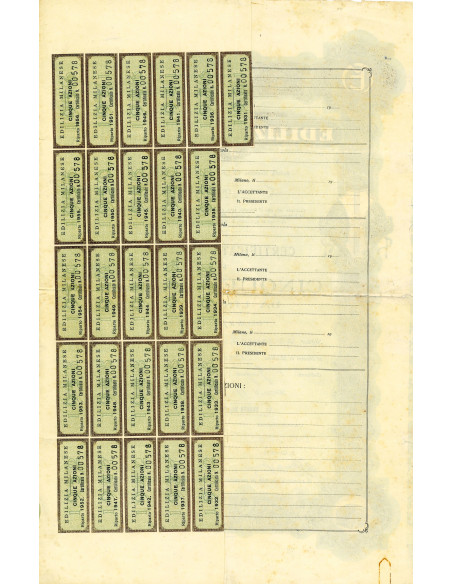 EDILIZIA MILANESE
CINQUE AZIONI
Riparto 1956. Certificato N. 00578
EDILIZIA MILANESE
CINQUE AZIONI
Riparto 1951. Certificato N. 00578
EDILIZIA MILANESE
CINQUE AZIONI
Riparto 1946. Certificato N. 00578
EDILIZIA MILANESE
CINQUE AZIONI
Riparto 1941. Certificato N. 00578
EDILIZIA MILANESE
CINQUE AZIONI
Riparto 1936. Certificato N. 00578
EDILIZIA MILANESE
CINQUE AZIONI
Riparto 1931. Certificato N. 00578
EDILIZIA MILANESE
CINQUE AZIONI
Riparto 1955. Certificato N. 00578
EDILIZIA MILANESE
CINQUE AZIONI
Riparto 1950. Certificato N. 00578
EDILIZIA MILANESE
CINQUE AZIONI
Riparto 1945. Certificato N. 00578
EDILIZIA MILANESE
CINQUE AZIONI
Riparto 1940. Certificato N. 00578
EDILIZIA MILANESE
CINQUE AZIONI
Riparto 1935. Certificato N. 00578
EDILIZIA MILANESE
CINQUE AZIONI
Riparto 1954. Certificato N. 00578
EDILIZIA MILANESE
CINQUE AZIONI
Riparto 1949. Certificato N. 00578
EDILIZIA MILANESE
CINQUE AZIONI
Riparto 1944. Certificato N. 00578
EDILIZIA MILANESE
CINQUE AZIONI
Riparto 1939. Certificato N. 00578
EDILIZIA MILANESE
CINQUE AZIONI
Riparto 1934. Certificato N. 00578
EDILIZIA MILANESE
CINQUE AZIONI
Riparto 1953. Certificato N. 00578
EDILIZIA MILANESE
CINQUE AZIONI
Riparto 1948. Certificato N. 00578
EDILIZIA MILANESE
CINQUE AZIONI
Riparto 1943. Certificato N. 00578
EDILIZIA MILANESE
CINQUE AZIONI
Riparto 1938. Certificato N. 00578
EDILIZIA MILANESE
CINQUE AZIONI
Riparto 1933. Certificato N. 00578
EDILIZIA MILANESE
CINQUE AZIONI
Riparto 1952. Certificato N. 00578
EDILIZIA MILANESE
CINQUE AZIONI
Riparto 1947. Certificato N. 00578
EDILIZIA MILANESE
CINQUE AZIONI
Riparto 1942. Certificato N. 00578
EDILIZIA MILANESE
CINQUE AZIONI
Riparto 1937. Certificato N. 00578
EDILIZIA MILANESE
CINQUE AZIONI
Riparto 1932. Certificato N. 00578
19
TTANTE
IDENTE
Milano, il 19
L'ACCETTANTE
IL PRESIDENTE
Milano, il 19
L'ACCETTANTE
IL PRESIDENTE
Milano, il 19
L'ACCETTANTE
IL PRESIDENTE
ZIONI: